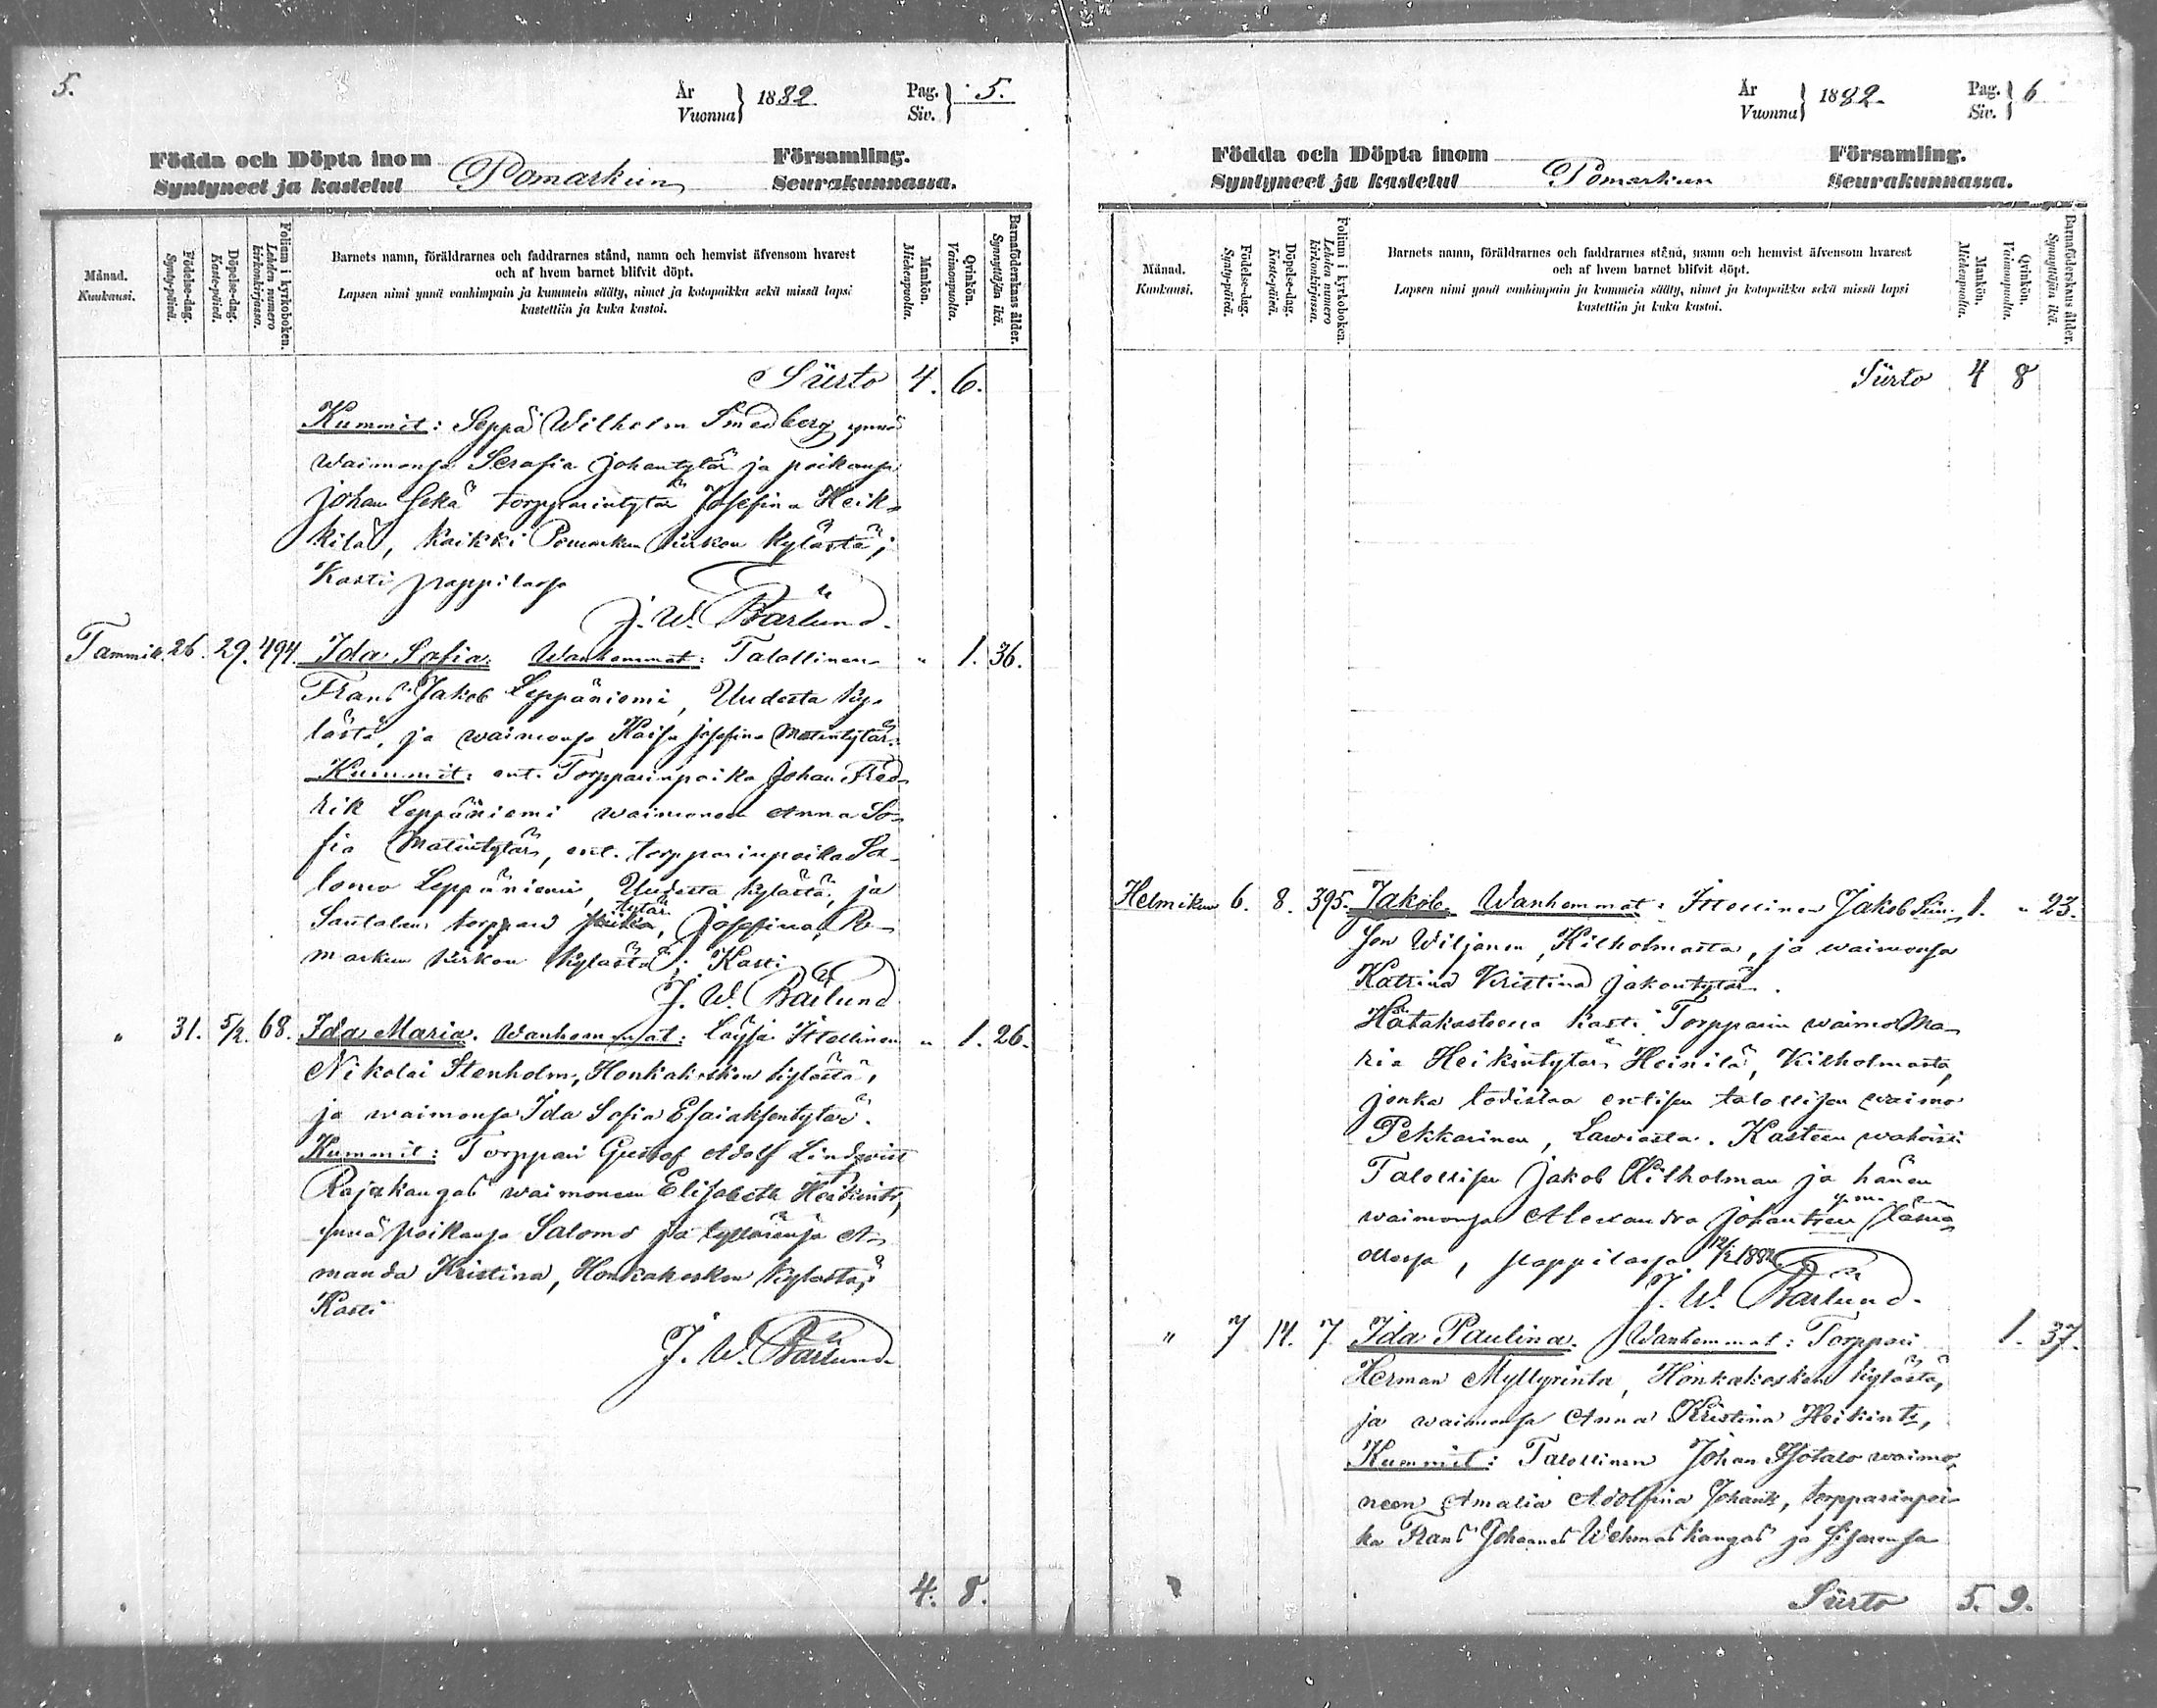 5.
År
Vuonna } 1882
Pag.
Siv. } 5.
Födda och Döpta inom
Syntyneet ja kastetut
Pomarkun
Församling.
Seurakunnassa.
Månad.
Kuukausi.
Födelse-dag.
Synty-päivä.
Döpelse-dag.
Kaste-päivä.
Folium i kyrkoboken.
Lehden numero
kirkonkirjassa.
Barnets namn, föräldrarnes och faddrarnes stånd, namn och hemvist äfvensom hvarest
och af hvem barnet blifvit döpt.
Lapsen nimi ynnä vanhimpain ja kummein sääty, nimet ja kotopaikka sekä missä lapsi
kastettiin ja kuka kastoi.
Mankön.
Miehenpuolia.
Qvinkön.
Vaimonpuolia.
Barnaföderskans ålder.
Synnyttäjän ikä.
Siirto 4. 6.
Kummit: Seppä Wilhelm Smedberg ynnä
waimonsa Serafia Johantytär ja poikansa
Johan sekä torpparintytär Josefina Heik-
kilä, kaikki Pomarkun kirkon kylästä;
Kasti pappilassa
J. W. Bärlund.
Tammik. 26. 29. 494. Ida Sofia. Wanhemmat: Talollinen " 1. 36.
Frans Jakob Leppäniemi, Uudesta ky-
lästä, ja waimonsa Kaisa Josefina Matintytär.
Kummit: ent. Torpparinpoika Johan Fred-
rik Leppäniemi waimoneen Anna So-
fia Matintytär, ent. torpparinpoika Sa-
lomo Leppäniemi, Uudesta kylästä, ja
Santalan torpparin poika, tytär Josefina, Po-
markun kirkon kylästä; Kasti
J. W. Bärlund
" 31. 5/2. 68. Ida Maria. Wanhemmat: Itsellinen " 1. 26.
Nikolai Stenholm, Honkakosken kylästä,
ja waimonsa Ida Sofia Esaiaksentytär.
Kummit: Torppari Gustaf Adolf Lindqvist
Rajakangas waimoneen Elisabeth Heikint.,
ynnä poikansa Salomo ja tyttärensä A-
manda Kristina, Honkakosken kylästä;
Kasti
J. W. Bärlund
4. 8.
År
Vuonna } 1882.
Pag.
Siv. } 6
Födda och Döpta inom
Syntyneet ja kastetut
Pomarkun
Församling.
Seurakunnassa.
Månad.
Kuukausi.
Födelse-dag.
Synty-päivä.
Döpelse-dag.
Kaste-päivä.
Folium i kyrkoboken.
Lehden numero
kirkonkirjassa.
Barnets namn, föräldrarnes och faddrarnes stånd, namn och hemvist äfvensom hvarest
och af hvem barnet blifvit döpt.
Lapsen nimi ynnä vanhimpain ja kummein sääty, nimet ja kotopaikka sekä missä lapsi
kastettiin ja kuka kastoi.
Mankön.
Miehenpuolia.
Qvinkön.
Vaimonpuolia.
Barnaföderskans ålder.
Synnyttäjän ikä.
Siirto 4 8
Helmikuu 6. 8. 395. Jakob. Wanhemmat: Itsellinen Jakob 1. " 23.
Wiljanen, Kilholmasta, ja waimonsa
Katrina Kristina Jakontytär.
Hätäkasteessa kasti Torpparin waimo Ma-
ria Heikintytär Heinilä, Kilholmasta,
jonka todistaa entisen talollisen waimo
Pekkarinen, Lawiasta. Kasteen wahvisti
Talollisen Jakob Kilholman ja hänen
waimonsa Alexandra Johantr.
ollessa, pappilassa 12/2 1882
J. W. Bärlund.
" 7 14. 7. Ida Paulina. Wanhemmat: Torppari 1. 37.
Herman Myllyrinta, Honkakosken kylästä,
ja waimonsa Anna Kristina Heikintr,
Kummit: Talollinen Johan Isotalo waimo-
neen Amalia Adolfina Johant., torpparinpoi-
ka Frans Johannes Wehmaskangas ja sisarensa
Siirto 5. 9.